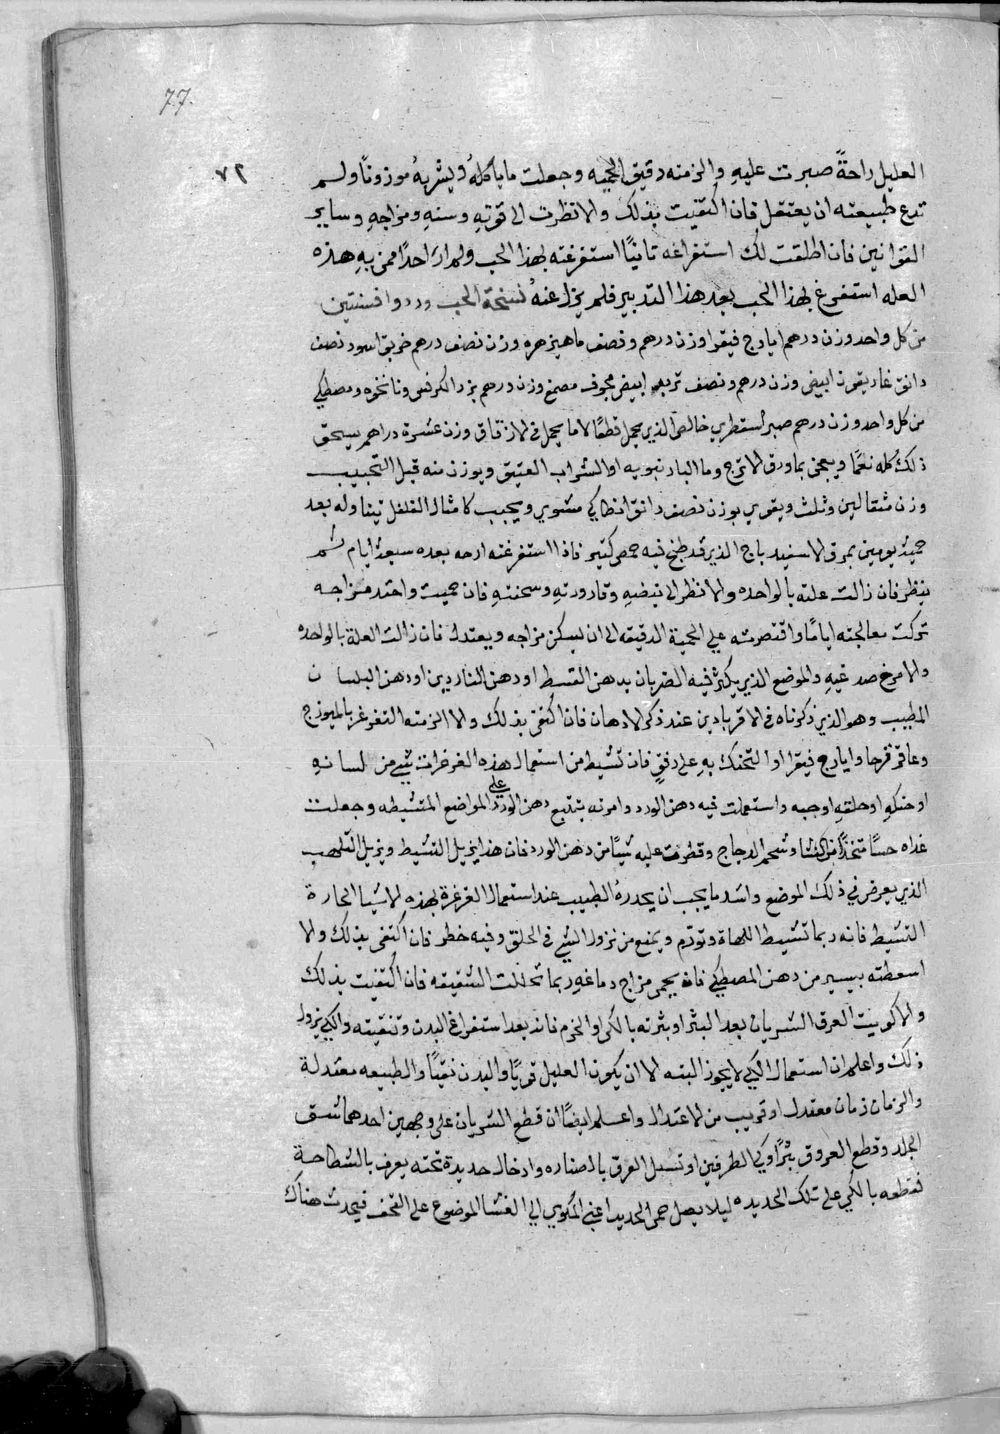 77.
٧٢
العليل راحةً صبرت عليهِ والزمته دقيق الحميه وجعلت ما ياكلهُ ويشربهُ موزونًا ولم
تدع طبيعته ان يعتقل فان اكتفيت بذلك والا نظرت الى قوتهِ وسنهِ ومزاجهِ وساير
القوانين فان اطلقت لك استفراغه ثانيًا استفرغته بهذا الحب ولم ار احدًا ممن بهِ هذه
العله استفرغ بهذا الحب بعد هذا التدبير فلم يزل عنهُ نسخة الحب ورد وافسنتين
من كل واحد وزن درهم ايارج فيقرا وزن درهم ونصف ماهيزهره وزن نصف درهم خربق اسود نصف
دانق غاريقون ابيض وزن درهم ونصف تربد ابيض مجوف مصمغ وزن درهم بزر الكرفس ونانخوه ومصطكي
من كل واحد وزن درهم صبر اسقطري خالص الذي يحمل قطعًا لا ما يحمل في الازقاق وزن عشرة دراهم يسحق
ذلك كله نعمًا ويعجن بماورق الاترج وما البادرنبويه او الشراب العتيق ويوزن منه قبل التحبيب
وزن مثقالين وثلث ويقوي بوزن نصف دانق انطاكي مشوي ويحبب كامثال الفلفل يتناوله بعد
حمية يومين بمرق الاسفيدباج الذي قد طبخ فيه حمص كثير فاذا استفرغته ارحه بعده سبعة ايام ثم
ينظر فان زالت علته بالواحده والا نظر الى نبضهِ وقارورتهِ وسحنتهِ فان حميت واحتد مزاجه
تركت معالجته ايامًا واقتصرته على الحمية الدقيقه الى ان يسكن مزاجه ويعتدل فان زالت العلة بالواحده
والا مرخ صدغيهِ والموضع الذي يكثر فيه الضربان بدهن القسط او دهن الناردين او دهن البلسان
المطيب وهو الذي ذكرناه في الاقرباذين عند ذكر الادهان فان اكتفى بذلك والا الزمته التغرغر بالميوزج
وعاقرقرحا وايارج فيقرا او التحنك بهِ على رفقٍ فان تشيط من استعمال هذه الغرغرات شي من لسانهِ
او حنكهِ او حلقهِ اوجبه واستعملت فيه دهن الورد وامرته بتتبع دهن الورد على المواضع المتشيطه وجعلت
غداه حسًا متخذًا من النشا وشحم الدجاج وقطرت عليه شيًا من دهن الورد فان هذا يزيل التشيط ويزيل التلهب
الذي يعرض في ذلك الموضع واشد ما يجب ان يحدره الطبيب عند استعمال الغرغرة بهذه الاشيا الحارة
التشيط فانه ربما تشيط اللهاة وتورم ويمنع من نزول الشي في الحلق وفيه خطر فان اكتفى بذلك والا
اسعطته بيسير من دهن المصطكي فانه يحمي مزاج دماغهِ وربما تحللت الشقيقه فان اكتفيت بذلك
والا كويت العرق الشريان بعد البتر او بترته بالكي او الخزم فانه بعد استفراغ البدن وتنقيته والكي يزول
ذلك واعلم ان استعمال الكي لا يجوز البته الا ان يكون العليل قويًا والبدن نقيًا والطبيعه معتدلة
والزمان زمان معتدل او قريب من الاعتدال واعلم ايضًا ان قطع الشريان على وجهين احدهما شق
الجلد وقطع العروق بترًا وكي الطرفين او تسبل العرق بالصناره وادخال حديدة تحته يعرف بالشطاحة
فقطعه بالكي على تلك الحديده ليلا يصل حمى الحديد اعني المكوي الى الغشا الموضوع على القحف فيحدث هناك